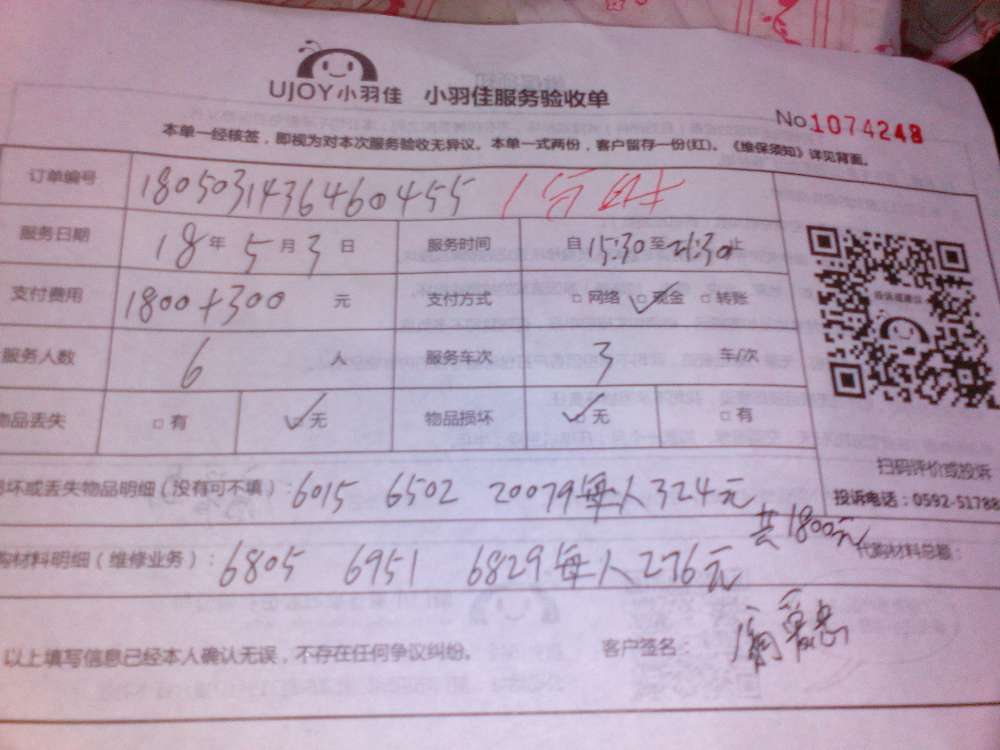 UJOY小羽佳 小羽佳服务验收单
No 1074248
本单一经核签，即视为对本次服务验收无异议。本单一式两份，客户留存一份(红)。《维保须知》详见背面。
订单编号 180503143646 0455
服务日期 18年 5月 3日 服务时间 自15:30至21:30止
支付费用 1800+300 元 支付方式 □网络 ☑现金 □转账
服务人数 6 人 服务车次 3 车/次
物品丢失 □有 ☑无 物品损坏 ☑无 □有
扫码评价或投诉
投诉电话：0592-51788
坏或丢失物品明细（没有可不填）：6015 6502 20079每人324元
共1800元
购材料明细（维修业务）：6805 6951 6829每人276元 代购材料总额：
以上填写信息已经本人确认无误，不存在任何争议纠纷。 客户签名：